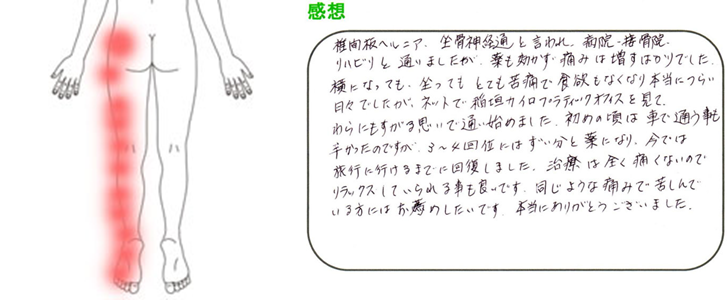 感想
椎間板ヘルニア、坐骨神経通と言われ、病院・接骨院
リハビリと通いましたが、薬も効かず痛みは増すばかりでした。
横になっても、坐っても とても苦痛で食欲もなくなり本当につらい
日々でしたが、ネットで稲垣カイロプラティックオフィスを見て、
わらにもすがる思いで通い始めました。初めの頃は車で通う事も
辛かったのですが、3〜4回位にはずい分と楽になり、今では
旅行に行けるまでに回復しました。治療は全く痛くないので
リラックスしていられる事も良いです。同じような痛みで苦しんで
いる方にはお薦めしたいです。本当にありがとうございました。